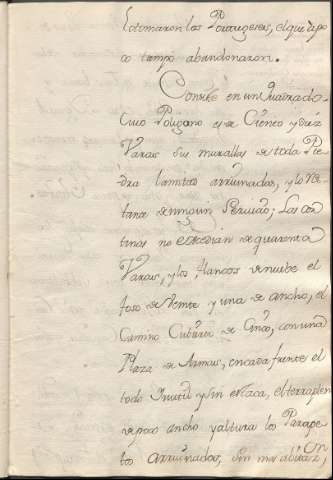 lo tomaron los Portugueses, el que a po
co tiempo abandonaron.
Consiste en un Quadrado
Cuio Poligono es de Ciento y diez
Varas sus murallas de toda Pie
dra la mitad arruinadas, y lo res
tante de ningun Servicio; Las cor
tinas no exedian de quarenta
Varas, y los flancos de nuebe el
foso de Veinte y una de ancho, el
Camino Cubierto de Cinco, con una
Plaza de Armas, en cada frente el
todo Inutil y sin estaca, el terraplen
de poco ancho y altura los Parape
tos arruinados, sin mas abitaz.
on